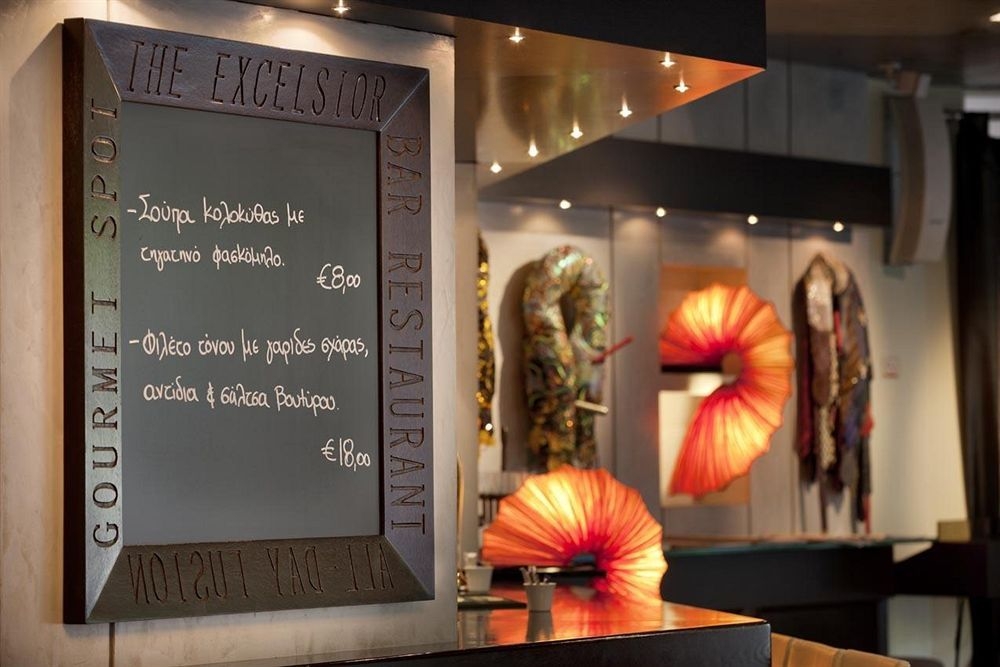 THE EXCELSIOR
BAR RESTAURANT
ALL-DAY FUSION
GOURMET SPOT
-Σούπα κολοκύθας με
τηγατηνό φασκόμηλο.
€8,00
-Φιλέτο τόνου με γαρίδες σχάρας,
αντίδια & σάλτσα βουτύρου.
€18,00